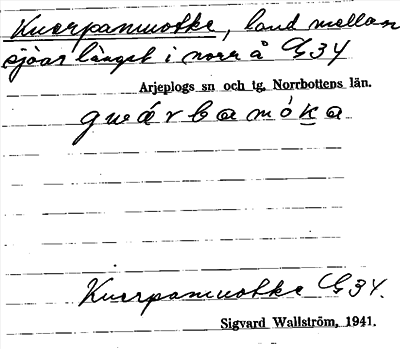 Kuorpamuotke, land mellan
sjöar längst i norr å G 34
Arjeplogs sn och tg, Norrbottens län.
guárbamóka
Kuorpamuotke G 34.
Sigvard Wallström, 1941.